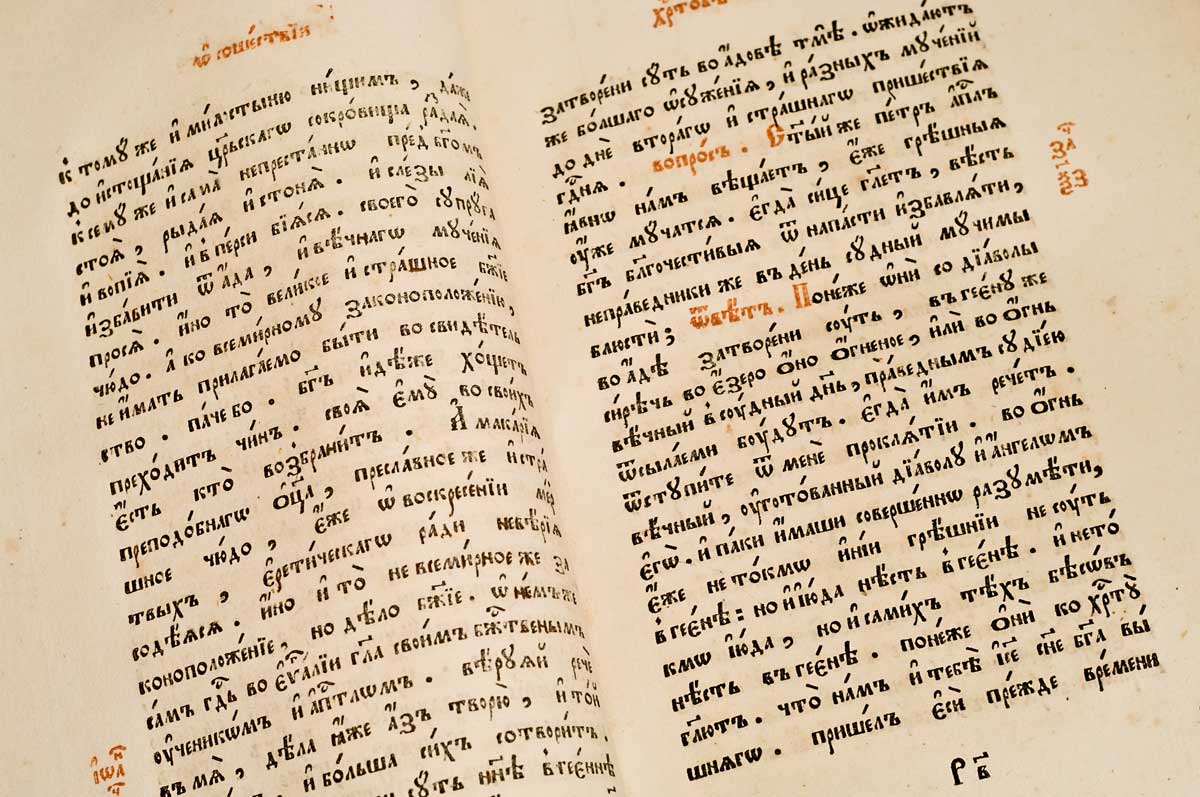 ѡ҆ сошéствїи
к̾ томꙋ́ же и҆ ми́лⷭ҇тыню ни́щимъ , да́же
до и҆стощáнїѧ црⷭ҇скагѡ сокрóвища ра́даѧ .
к̾ семꙋ́ же и҆ самà непрестáннѡ предъ бг҃омъ
стоѧ̀ , рыдáѧ и҆ стонѧ̀ . и҆ слéзы лїѧ̀
и҆ вопїѧ̀ . и҆ в̾ пéрси бїѧ́сѧ . своегò сꙋпрꙋ́га
и҆збáвити ѿ а҆́да , и҆ вѣ́чнагѡ мꙋчéнїѧ
просѧ̀ . и҆́но тò вели́кое и҆ стрáшное бж҃їе
чю́до . а҆ ко всеми́рномꙋ законоположéнїю ,
не и҆́мать прилагáемо бы́ти во свидѣ́тель
ство . пáче бо . бг҃ъ и҆дѣ́же хóщетъ
прехóдитъ чи́нъ . своѧ̀ є҆мꙋ̀ во свои́хъ
є҆́сть кто̀ возбрани́тъ . А҆ макáрїѧ
преподóбнагѡ ѻ҆ц҃à , преслáвное же и҆ стрá
шное чю́до , є҆́же ѡ҆ воскресéнїи мéр
твыхъ , є҆рети́ческагѡ рáди невѣ́рїѧ
содѣ́ѧсѧ . и҆́но и҆ тò не всеми́рное же за
коноположéнїе , но дѣ́ло бж҃їе . ѡ҆ нéмъ же
сáмъ гдⷭ҇ь во є҆ѵⷢ҇лїи гл҃а свои́мъ бжⷭ҇твенымъ
ᲂу҆ченикѡ́мъ и҆ а҆пⷭ҇тлѡмъ . вѣ́рꙋѧй рече
въ мѧ̀ , дѣлà ꙗ҆́же а҆́зъ творю̀ , и҆ тóй
и҆ бóльша си́хъ сотвори́тъ .
сꙋ́ть нн҃ѣ в̾ геéннѣ
і҆ѡаⷩ҇
хрⷭ҇товѣ
затворéни сꙋ́ть во а҆́довѣ тмѣ̀ . ѡ҆жидáютъ
же бóлшаго ѡ҆сꙋжéнїѧ , и҆ рáзныхъ мꙋчéнїй
до днè вторáгѡ и҆ стрáшнагѡ пришéствїѧ
гдⷭ҇нѧ . вопрóсъ . Ст҃ы́й же пéтръ а҆пⷭ҇лъ
ꙗ҆́внѡ нáмъ вѣщáетъ , є҆́же грѣ́шныѧ
ᲂу҆же мꙋ́чатсѧ . є҆гдà си́це гл҃етъ , вѣ́сть
бг҃ъ бл҃гочести́выѧ ѿ напáсти и҆збавлѧ́ти ,
непрáведники же въ дéнь сꙋ́дный мꙋ́чимы
блюстѝ ; ѿвѣ́тъ . Понéже ѻ҆нѝ со дїáволы
во а҆́дѣ затворéни сꙋ́ть , въ геéнꙋ же
си́рѣчь во є҆́зеро ѻ҆́но ѻ҆́гненое , и҆лѝ во ѻ҆́гнь
вѣ́чный в̾ сꙋ́дный дн҃ь , прáведнымъ сꙋдїéю
ѿсылáеми бꙋ́дꙋтъ . є҆гдà и҆̀мъ речéтъ .
ѿстꙋпи́те ѿ менè проклѧ́тїи . во ѻ҆́гнь
вѣ́чный , ᲂу҆готóванный дїáволꙋ и҆ а҆́нгелѡмъ
є҆гѡ̀ . и҆ пáки и҆́маши совершéннѡ разꙋмѣ́ти ,
є҆́же не тóкмѡ и҆нї́и грѣ́шнїи не сꙋ́ть
в̾ геéнѣ : но и҆ і҆ю́да нѣ́сть в̾ геéнѣ . и҆ не тó
кмѡ і҆ю́да , но и҆ сами́хъ тѣ́хъ бѣсѡ́въ
нѣ́сть въ геéнѣ . понéже ѻ҆нѝ ко хрⷭ҇тꙋ̀
гл҃ютъ . чтò нáмъ и҆ тебѣ̀ і҆и҃се сн҃е бг҃а вы
шнѧгѡ . пришéлъ є҆сѝ прéжде врéмени
заⷱ҇
рв҃